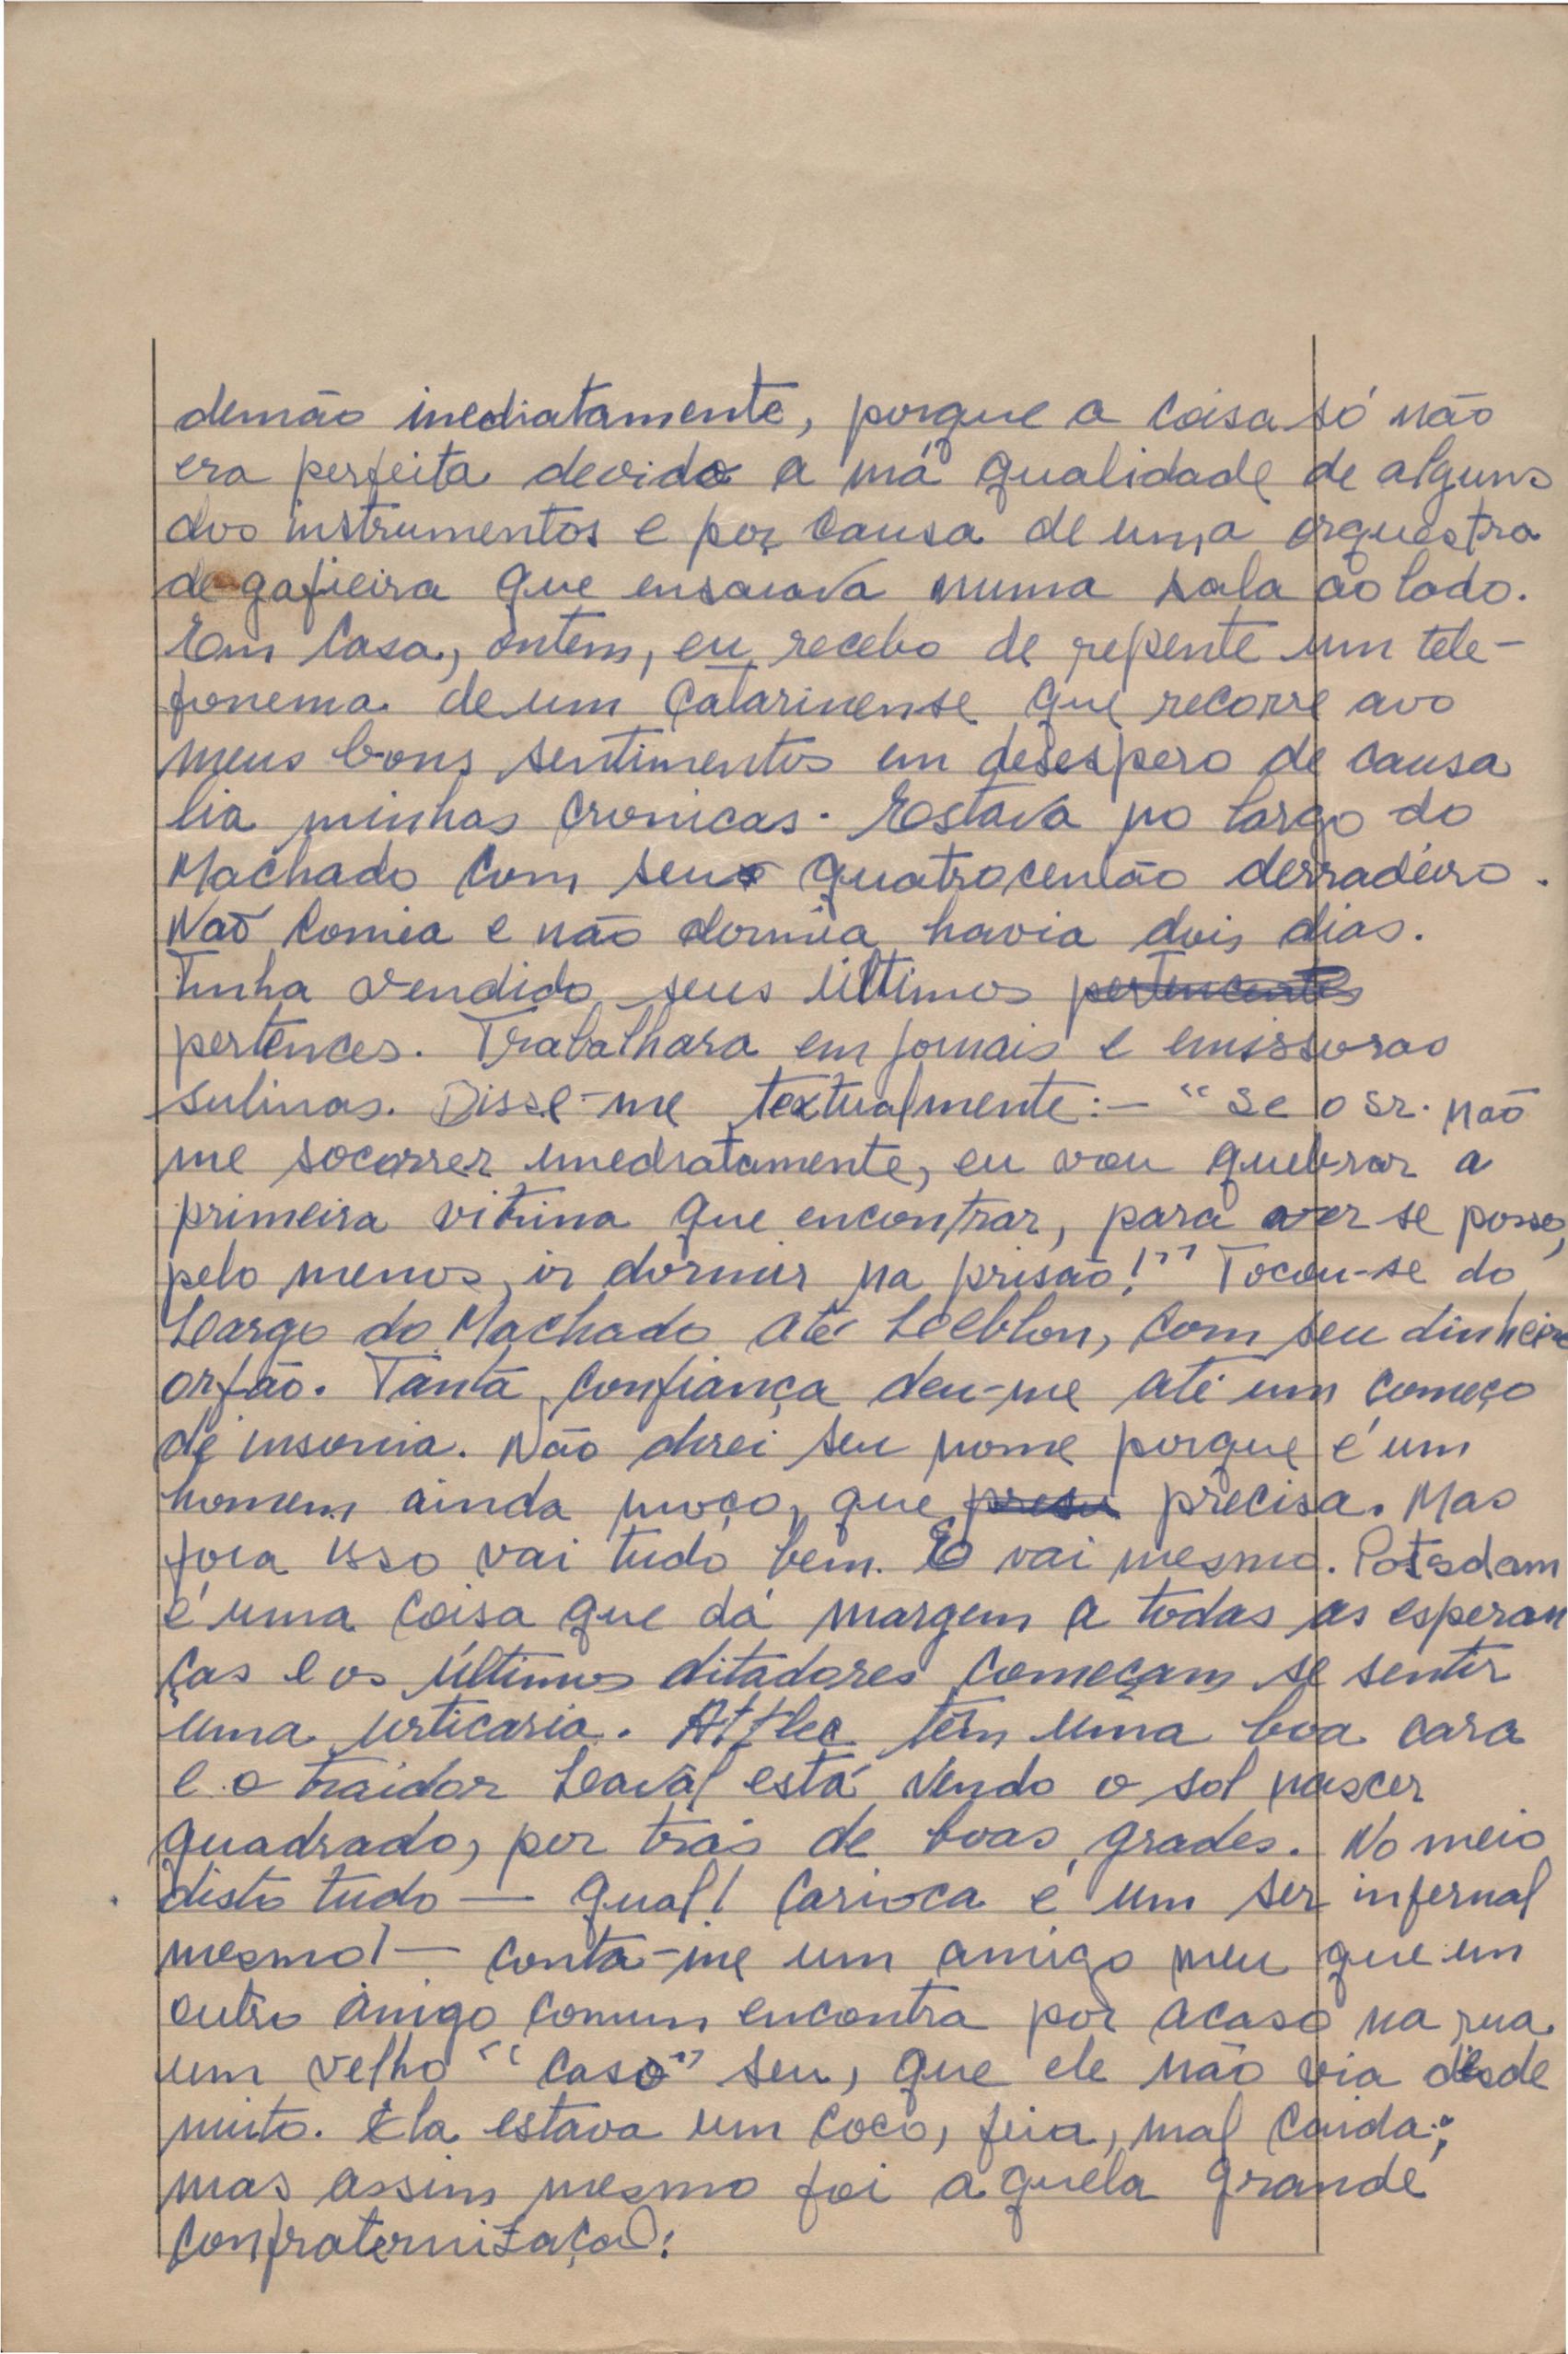 demão imediatamente, porque a coisa só não
era perfeita devido a má qualidade de alguns
dos instrumentos e por causa de uma orquestra
de gafieira que ensaiava numa sala ao lado.
Em casa, ontem, eu recebo de repente um tele-
fonema de um catarinense que recorre aos
meus bons sentimentos em desespero de causa
lia minhas cronicas. Estava no largo do
Machado com seus quatrocentão derradeiro.
Não comia e não dormia havia dois dias.
Tinha vendido seus últimos pertencentes
pertences. Trabalhara em jornais e emissoras
sulinas. Disse-me textualmente: - "Se o sr. não
me socorrer imediatamente, eu vou quebrar a
primeira vitrina que encontrar, para ver se posso,
pelo menos, ir dormir na prisão!" Tocou-se do
Largo do Machado até Leeblon, com seu dinheiro
orfão. Tanta confiança deu-me até um começo
de insonia. Não direi seu nome porque é um
homem ainda moço, que presu precisa. Mas
fora isso vai tudo bem. E vai mesmo. Potsdam
é uma coisa que dá margem a todas as esperan
ças e os últimos ditadores começam se sentir
uma urticaria. Attlee têm uma boa cara
e o traidor Laval está vendo o sol nascer
quadrado, por trás de boas grades. No meio
disto tudo — qual! carioca é um ser infernal
mesmo! — conta-me um amigo meu que um
outro amigo comum encontra por acaso na rua
um velho "caso" seu, que ele não via desde
muito. Ela estava um coco, feia, mal caida;
mas assim mesmo foi aquela grande
confraternização: